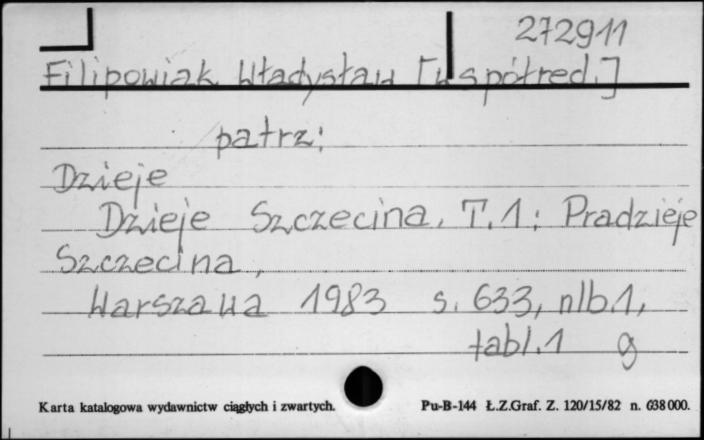 272911
Filipowiak Władysław [współred.]
patrz:
Dzieje
Dzieje Szczecina. T.1: Pradzieje
Szczecina,
Warszawa 1983 s. 633, nlb.1,
tabl.1 g
Karta katalogowa wydawnictw ciągłych i zwartych. Pu-B-144 Ł.Z.Graf. Z. 120/15/82 n. 638000.